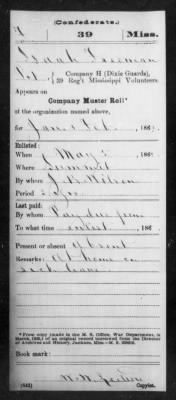 (Confederate.)
39 Miss.
Isaah Freeman
Company H (Dixie Guards),
39 Reg't Mississippi Volunteers.
Appears on
Company Muster Roll*
of the organization named above,
for Jan & Feb, 186
Enlisted:
When May 3, 186
Where Summit
By whom J. R. Wilson
Period
Last paid:
By whom Pay due from
To what time enlist 186
Present or absent Absent
Remarks: At home on
sick leave
*From copy (made in the M. S. Office, War Department, in
March, ) of an original record borrowed from the Director
of Archives and History, Jackson, Miss.—M. S.
Book mark:
(642)
Copyist.